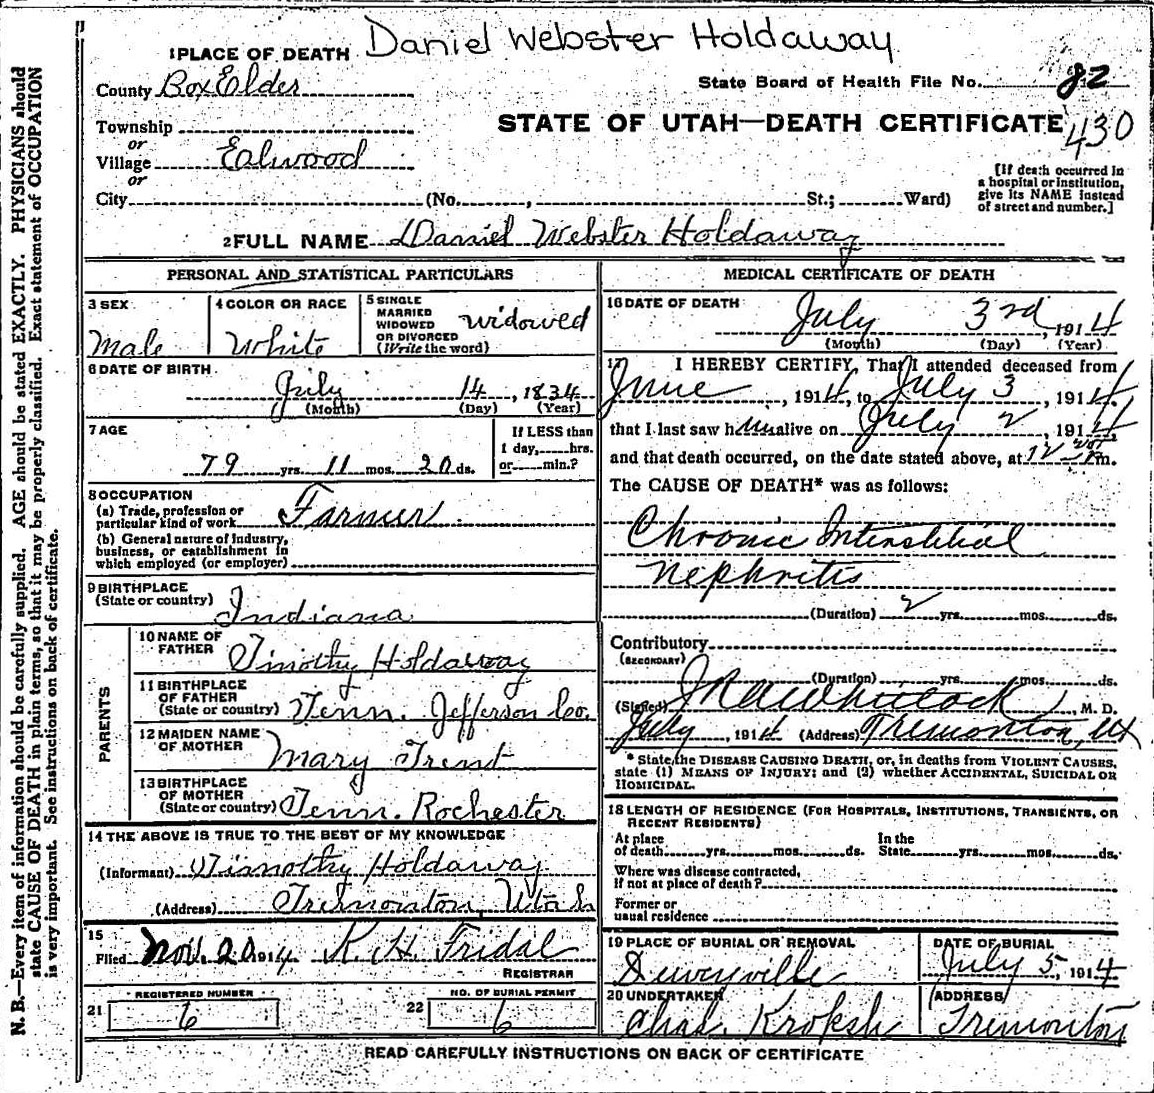 Daniel Webster Holdaway
1 PLACE OF DEATH
County Box Elder
State Board of Health File No. 82
Township
STATE OF UTAH—DEATH CERTIFICATE 430
or
Village Ealwood
or
City (No. , St.; Ward)
[If death occurred in
a hospital or institution,
give its NAME instead
of street and number.]
2 FULL NAME Daniel Webster Holdaway
PERSONAL AND STATISTICAL PARTICULARS
3 SEX
Male
4 COLOR OR RACE
White
5 SINGLE
MARRIED
WIDOWED
OR DIVORCED
(Write the word)
Widowed
6 DATE OF BIRTH
July 14, 1834
(Month) (Day) (Year)
7 AGE
79 yrs. 11 mos. 20 ds.
If LESS than
1 day, hrs.
or min.?
8 OCCUPATION
(a) Trade, profession or
particular kind of work Farmer
(b) General nature of industry,
business, or establishment in
which employed (or employer)
9 BIRTHPLACE
(State or country) Indiana
PARENTS
10 NAME OF
FATHER Timothy Holdaway
11 BIRTHPLACE
OF FATHER
(State or country) Tenn. Jefferson Co.
12 MAIDEN NAME
OF MOTHER Mary Trent
13 BIRTHPLACE
OF MOTHER
(State or country) Tenn. Rochester
14 THE ABOVE IS TRUE TO THE BEST OF MY KNOWLEDGE
(Informant) Timothy Holdaway
(Address) Tremonton, Utah
15
Filed Nov. 20 1914 K. H. Fridal
REGISTRAR
REGISTERED NUMBER
21 6
NO. OF BURIAL PERMIT
22 6
MEDICAL CERTIFICATE OF DEATH
16 DATE OF DEATH
July 3rd, 1914
(Month) (Day) (Year)
17 I HEREBY CERTIFY, That I attended deceased from
June, 1914, to July 3, 1914.
that I last saw him alive on July 2, 1914,
and that death occurred, on the date stated above, at 12 m.
The CAUSE OF DEATH* was as follows:
Chronic Interstitial
Nephritis
(Duration) 2 yrs. mos. ds.
Contributory
(SECONDARY)
(Duration) yrs. mos. ds.
(Signed) Whitlock, M. D.
July, 1914 (Address) Tremonton, Ut
* State the DISEASE CAUSING DEATH, or, in deaths from VIOLENT CAUSES,
state (1) MEANS OF INJURY; and (2) whether ACCIDENTAL, SUICIDAL OR
HOMICIDAL.
18 LENGTH OF RESIDENCE (FOR HOSPITALS, INSTITUTIONS, TRANSIENTS, OR
RECENT RESIDENTS)
At place
of death yrs. mos. ds.
In the
State yrs. mos. ds.
Where was disease contracted,
if not at place of death?
Former or
usual residence
19 PLACE OF BURIAL OR REMOVAL
Deweyville
DATE OF BURIAL
July 5, 1914
20 UNDERTAKER
Chas. Kroksh
ADDRESS
Tremonton
READ CAREFULLY INSTRUCTIONS ON BACK OF CERTIFICATE
N. B.—Every item of information should be carefully supplied. AGE should be stated EXACTLY. PHYSICIANS should
state CAUSE OF DEATH in plain terms, so that it may be properly classified. Exact statement of OCCUPATION
is very important. See instructions on back of certificate.